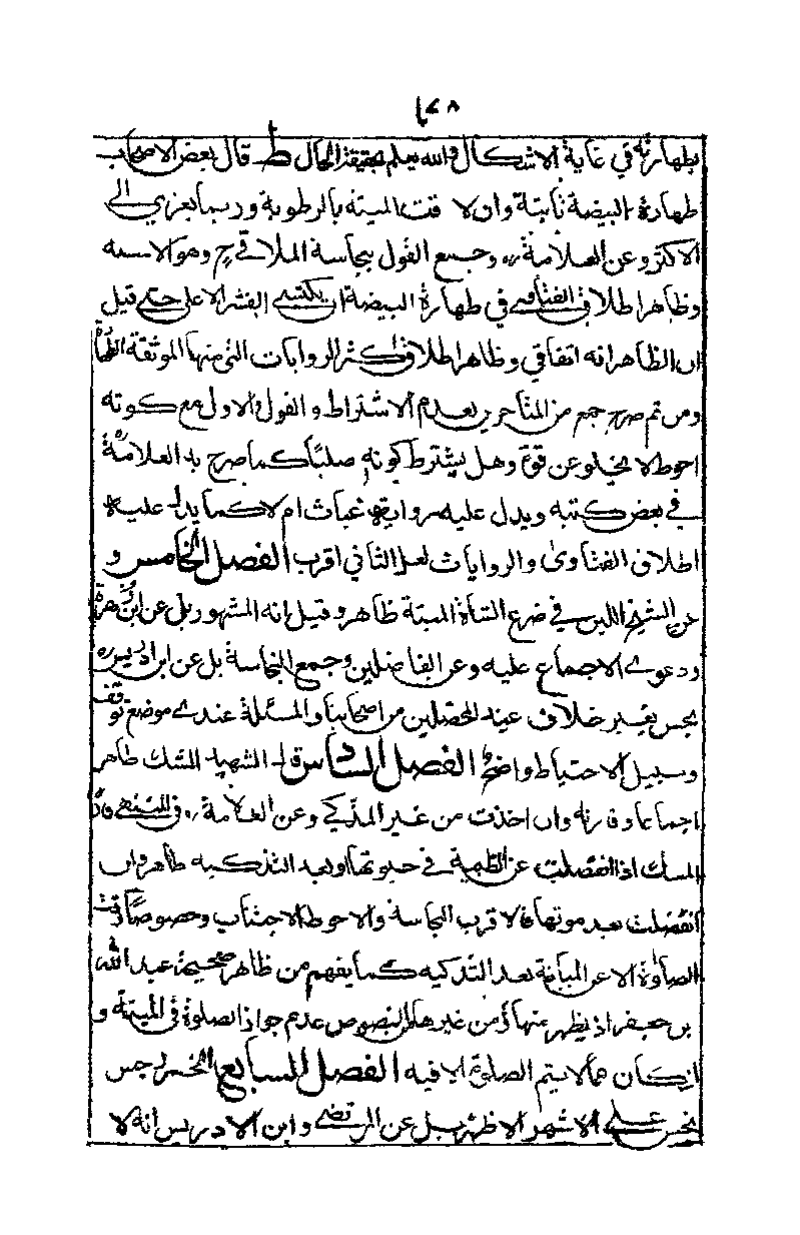 بطهارته في غاية الاشكال والله يعلم بحقيقة الحال ط قال بعض الاصحاب
طهارة البيضة ثابتة وان لاقت الميتة بالرطوبة وربما يعزي الى
الاكثر وعن العلامة ره وجمع القول بنجاسة الملاقي ح وهو الاسبه
وظاهر اطلاق الفتاوى في طهارة البيضة ان يكتسى القشر الاعلى حتى قيل
ان الظاهر انه اتفاقي وظاهر اطلاق اكثر الروايات التى منها الموثقة
ومن ثم صرح جمع من المتأخرين بعدم الاشتراط والقول الاول مع كونه
احوط لا يخلو عن قوة وهل يشترط كونه صلبًا كما صرح به العلامة ره
في بعض كتبه ويدل عليه رواية غياث ام لا كما يدل عليه
اطلاق الفتاوى والروايات لعل الثاني اقرب الفصل الخامس و
عن الشيخ اللبن في ضرع الشاة الميتة طاهر وقيل انه المشهور بل عن ابن زهرة
ودعوى الاجماع عليه وعن الفاضلين وجمع النجاسة بل عن ابن ادريس ره
نجس بغير خلاف عند المحصلين من اصحابنا والمسئلة عندى موضع توقف
وسبيل الاحتياط واضح الفصل السادس قال الشهيد المسك طاهر
اجماعا وفارته وان اخذت من غير المذكى وعن العلامة ره في المنتهى فأرة
المسك اذا انفصلت عن الظبية في حيوتها او بعد التذكية طاهر وان
انفصلت بعد موتها فالاقرب النجاسة والاحوط الاجتناب وخصوصًا وقت
الصلوة الا عن المباينة بعد التذكيه كما يفهم من ظاهر صحيحة عبد الله
بن جعفر اذ يظهر منها ومن غيرها من النصوص عدم جواز الصلوة في الميتة و
ان كان مما لا يتم الصلوة الا فيه الفصل السابع الخمر نجس
نجس على الاشهر الاظهر بل عن المرتضى وابن الادريس انه لا